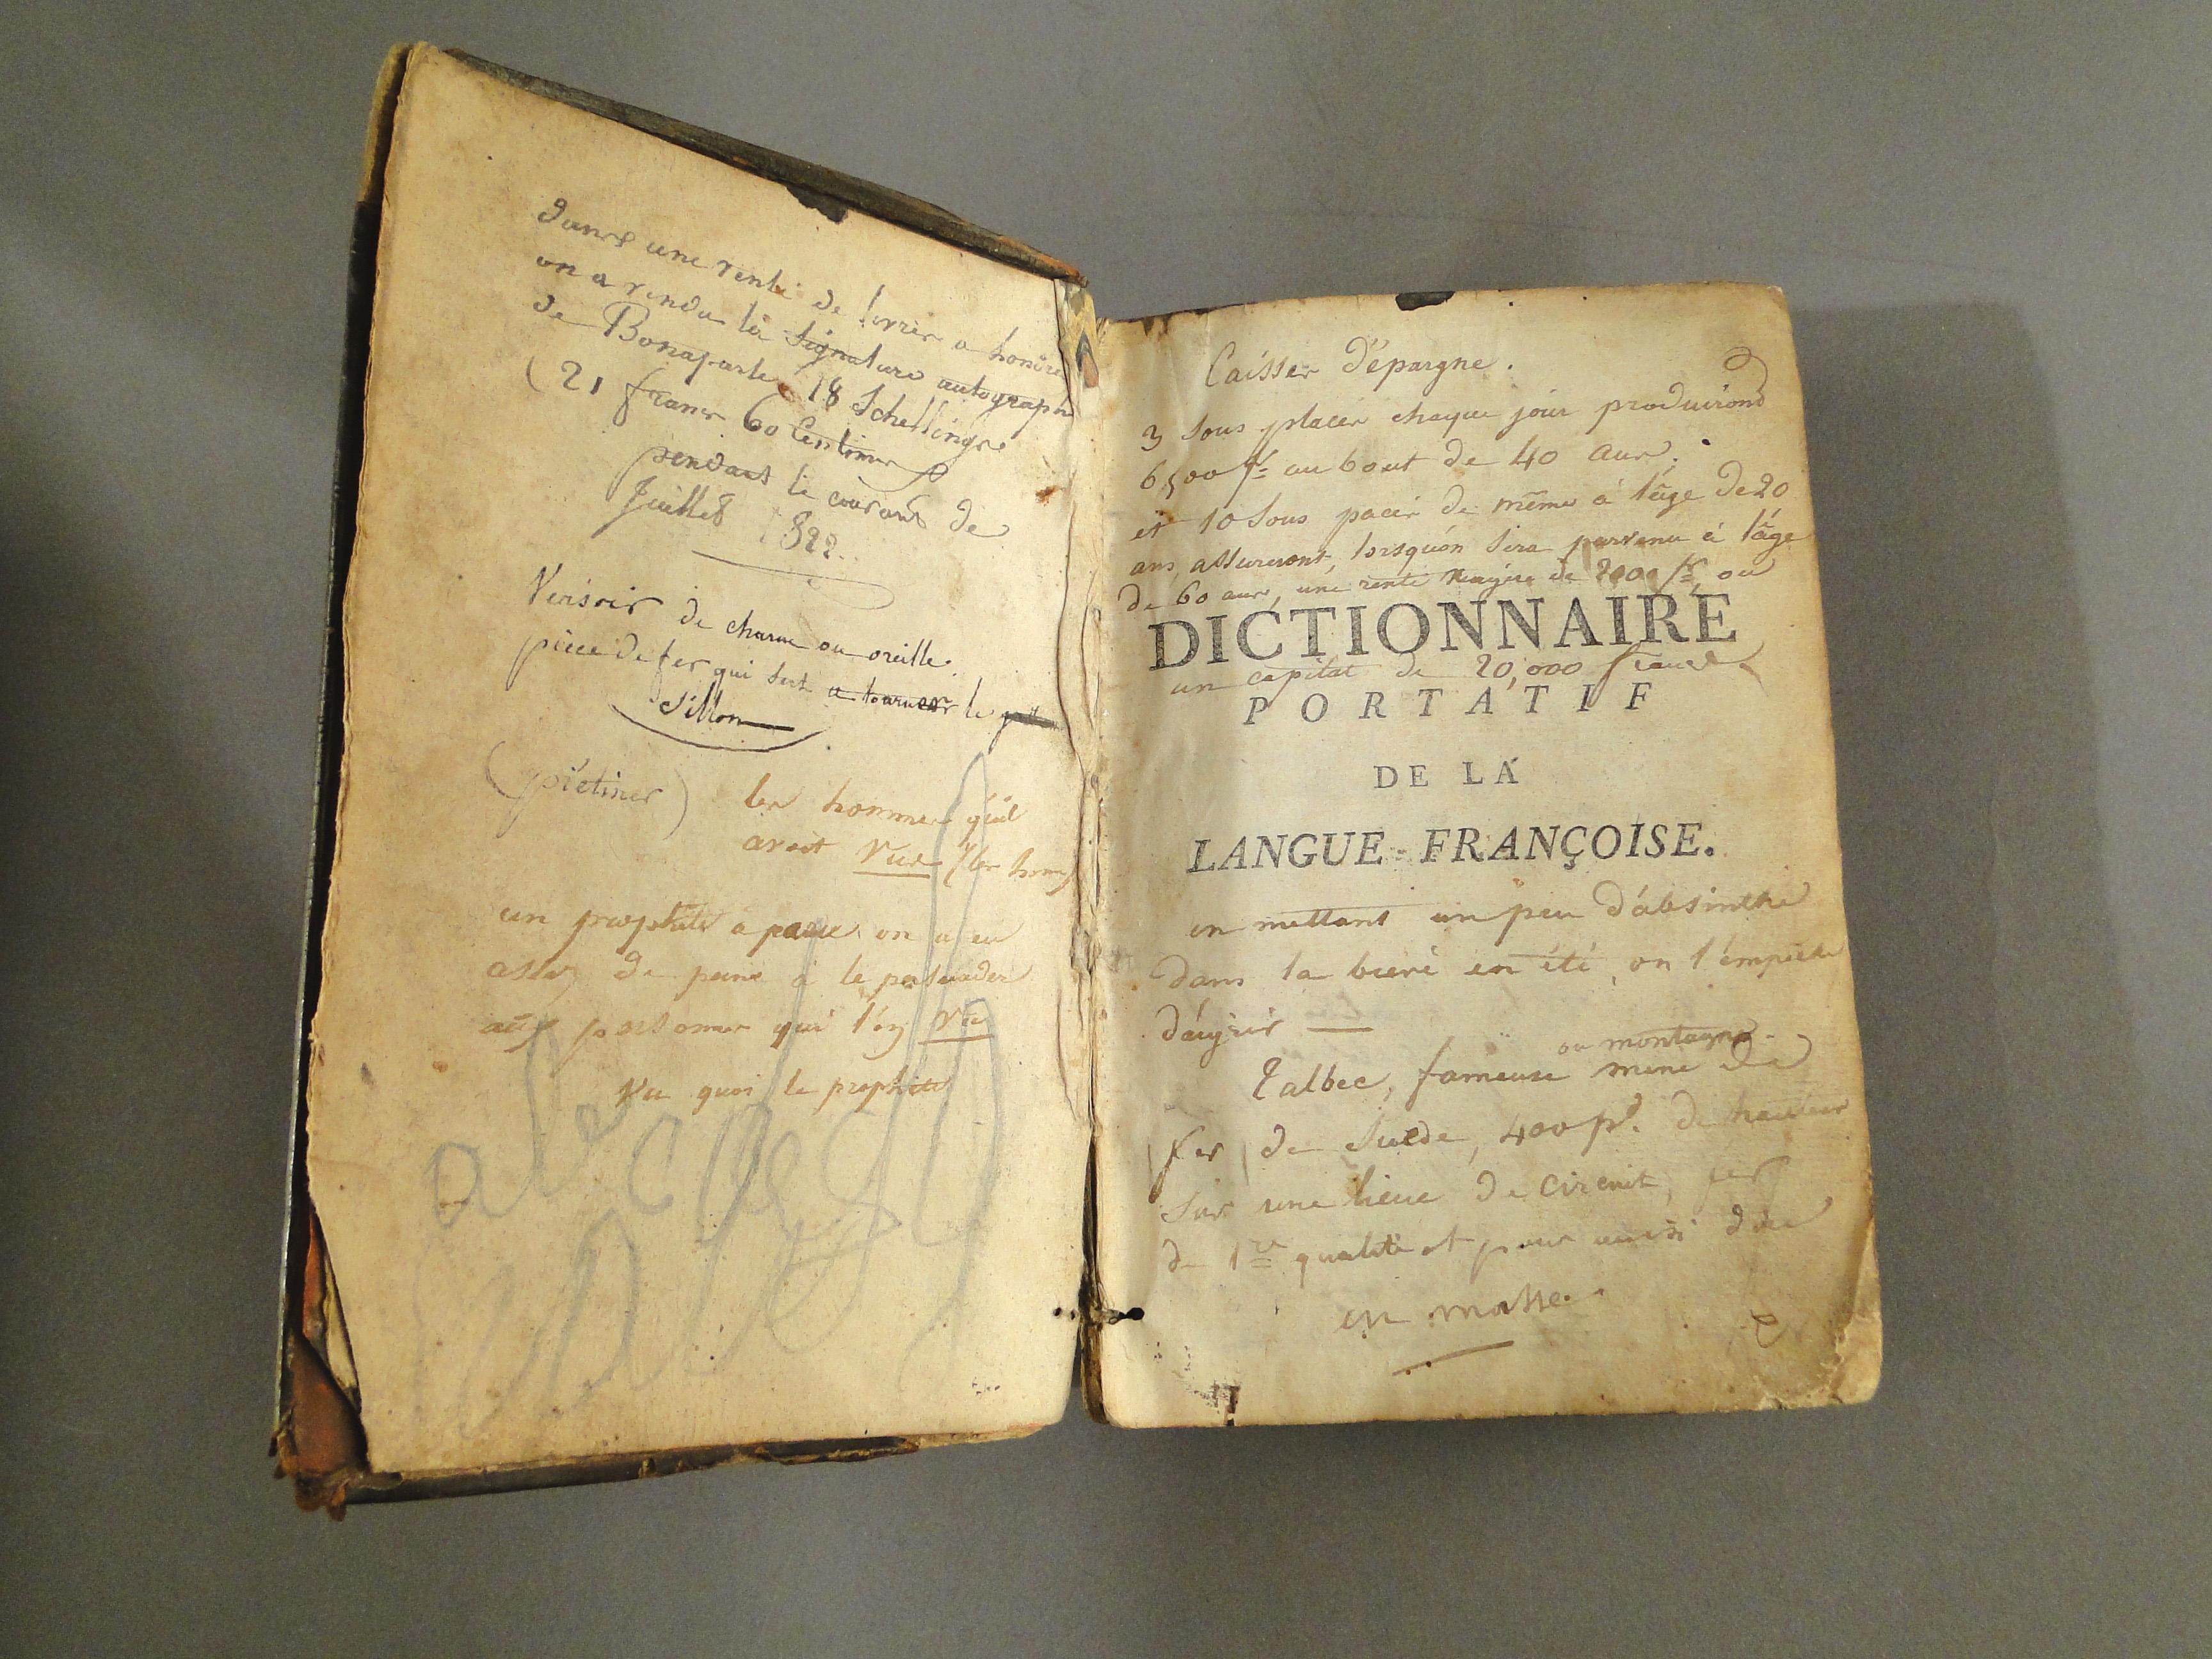 dans une vente de livres a Londres
on a vendu la signature autograph
de Bonaparte 18 Schellings
(21 francs 60 Centimes
pendant le courant de
Juillet 1822.
Versoir de charue ou oreille.
pièce de fer qui sert a tourner le
sillon
(piétiner) les hommes qu'il
avoit vus (les hom)
un prophete a parue on a eu
assez de peine à le persuader
aux personnes qui l'on vu
vu quoi le prophete
Caisses d'épargne.
3 sous placés chaque jour produiront
6500 fr au bout de 40 ans;
et 10 sous pacés de même à l'âge de 20
ans, assureront, lorsqu'on sera parvenu à l'âge
de 60 ans, une rente viagère de 2000 fr, ou
DICTIONNAIRE
un capital de 20,000 francs
PORTATIF
DE LA
LANGUE FRANÇOISE.
en mettant un peu d'absinthe
dans la bierè en été, on l'empêche
d'aigrir —
ou montagne
Talbec, fameuse mine de
fer de Suede, 400 pds. de hauteur
sur une lieue de circuit, fer
de 1re qualité et pour ainsi dire
en masse.